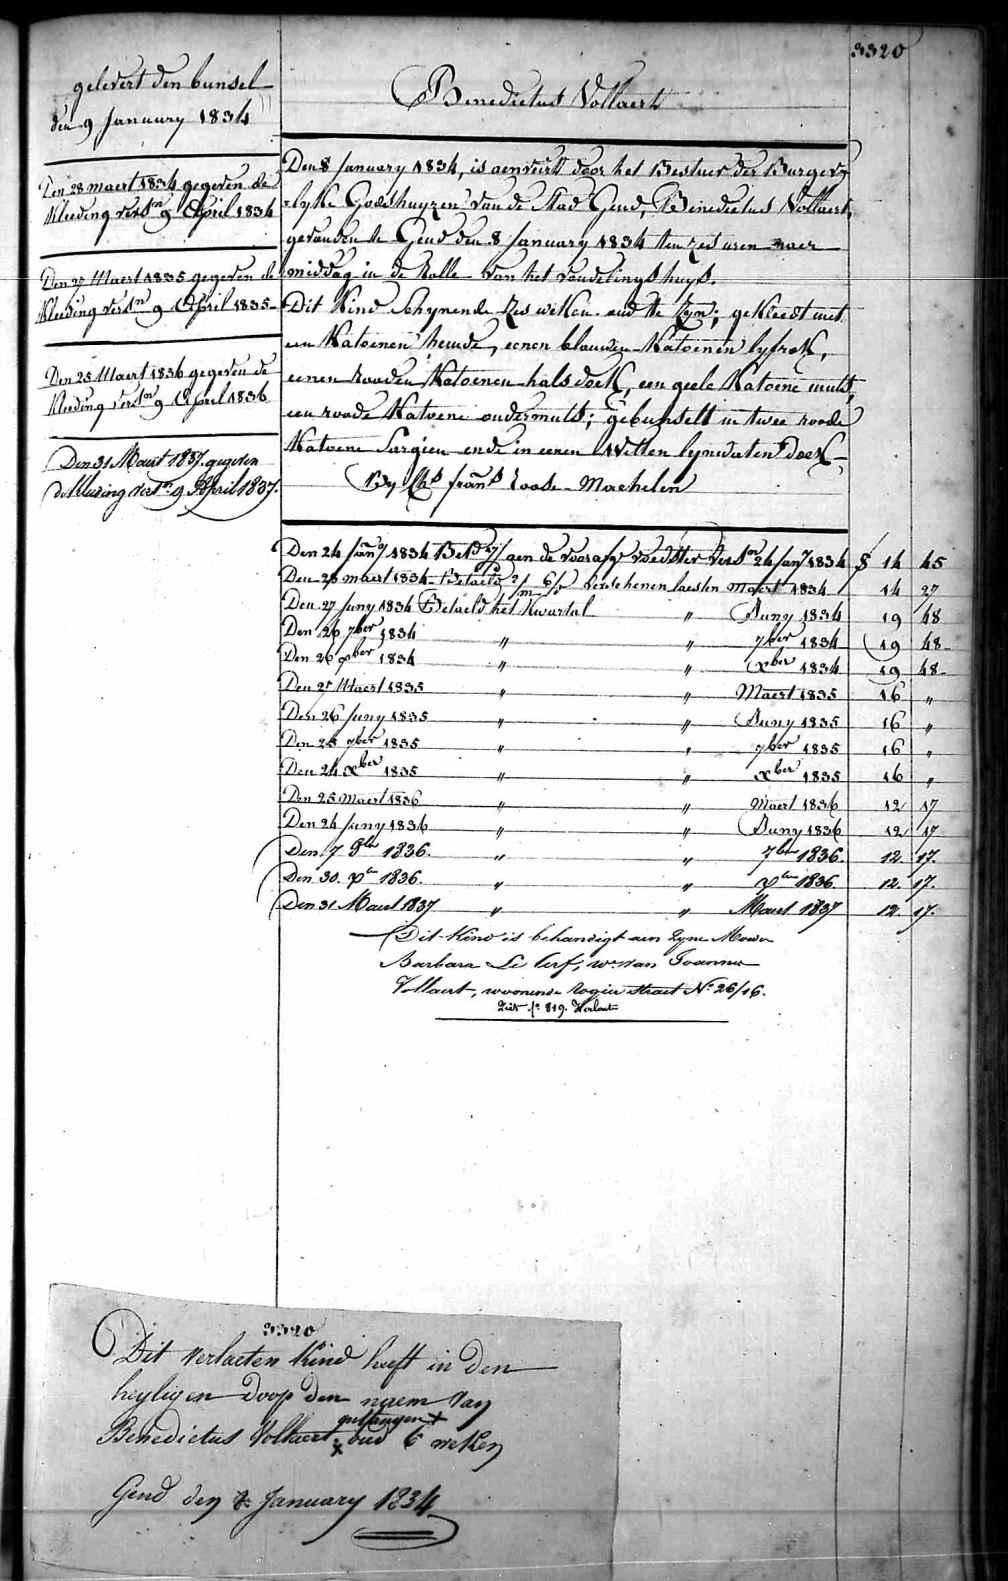 3320
gelevert den bunsel
den 9 January 1834
Den 28 maert 1834 gegeven de
Kleeding versn 9 April 1834
Den 27 Maert 1835 gegeven de
Kleeding versn 9 April 1835
Den 25 Maert 1836 gegeven de
Kleeding versn 9 April 1836
Den 31 Maert 1837 gegeven
de Kleeding versn 9 April 1837.
Benedictus Vollaert
Den 8 January 1834, is aenveirt door het Bestuer der Burger-
lyke Godshuyzen van de Stad Gend, Benedictus Vollaert,
gevonden te Gend den 8 January 1834 ten zes uren naer
middag in de Rolle van het vondelingshuys.
Dit Kind Schynende Zes weken oud te Zyn; gekleedt met
een Katoenen hemde, eenen blauwen Katoenen lyfrok,
eenen rooden Katoenen halsdoek, een geele Katoene muts,
een roode Katoene ondermuts; gebunselt in twee roode
Katoene Sargien ende in eenen Witten lynwaten Doek
By Chs frans Roose - Machelen
Den 24 Jany 1834 aen de voedster versn 24 Jany 1834 14 45
Den 28 maert 1834 Betaeld verschenen laesten maert 1834 14 27
Den 27 Juny 1834 Betaeld het Kwartal " Juny 1834 19 48
Den 26 7ber 1834 " " 7ber 1834 19 48
Den 26 xber 1834 " " xber 1834 19 48
Den 27 Maert 1835 " " Maert 1835 16 "
Den 26 Juny 1835 " " Juny 1835 16 "
Den 25 7ber 1835 " " 7ber 1835 16 "
Den 24 xber 1835 " " xber 1835 16 "
Den 25 Maert 1836 " " Maert 1836 12 17
Den 24 Juny 1836 " " Juny 1836 12 17
Den 7 8ber 1836. " " 7ber 1836. 12. 17.
Den 30. xber 1836. " " xber 1836 12. 17.
Den 31 Maert 1837 " " Maert 1837 12. 17.
Dit Kind is behandigt aen Zyne Moeder
Barbara Le Cerf, we van Joannes
Vollaert, woonende Rogier straet No 26/16.
Ziet fo 819. Verlaete
3320
Dit verlaeten Kind heeft in den
heyligen Doop den naem van
ontfangen x
Benedictus Vollaert x oud 6 weken
Gend den 8 January 1834